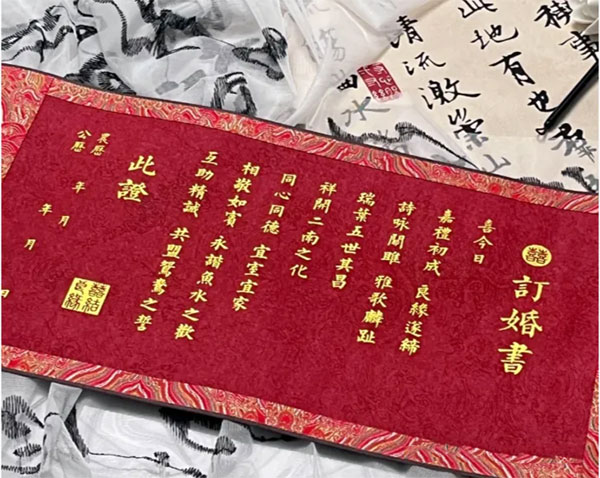 禊事也羣
此地有崇山
清流激
曲水
囍
訂婚書
喜今日
嘉禮初成 良緣遂締
詩詠關雎 雅歌麟趾
瑞葉五世其昌
祥開二南之化
同心同德 宜室宜家
相敬如賓 永諧魚水之歡
互助精誠 共盟鴛鴦之誓
此證
農曆 年 月
公曆 年 月 日
囍結良緣